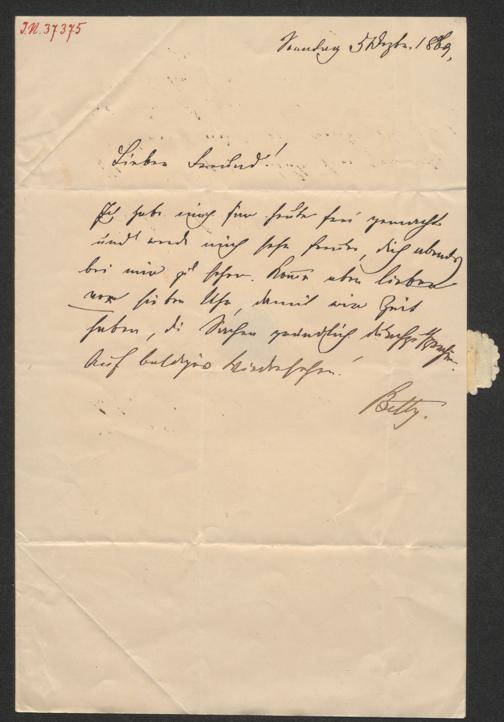 I.N. 37375
Sonntag 5 Dezbr. 1869,
Lieber Freund!
Ich habe mich für heute frei gemacht
und werde mich sehr freuen, dich abends
bei mir zu sehen. Komm aber lieber
vor sieben Uhr, damit wir Zeit
haben, die Sachen gründlich
Auf baldiges Wiedersehen!
Betty.